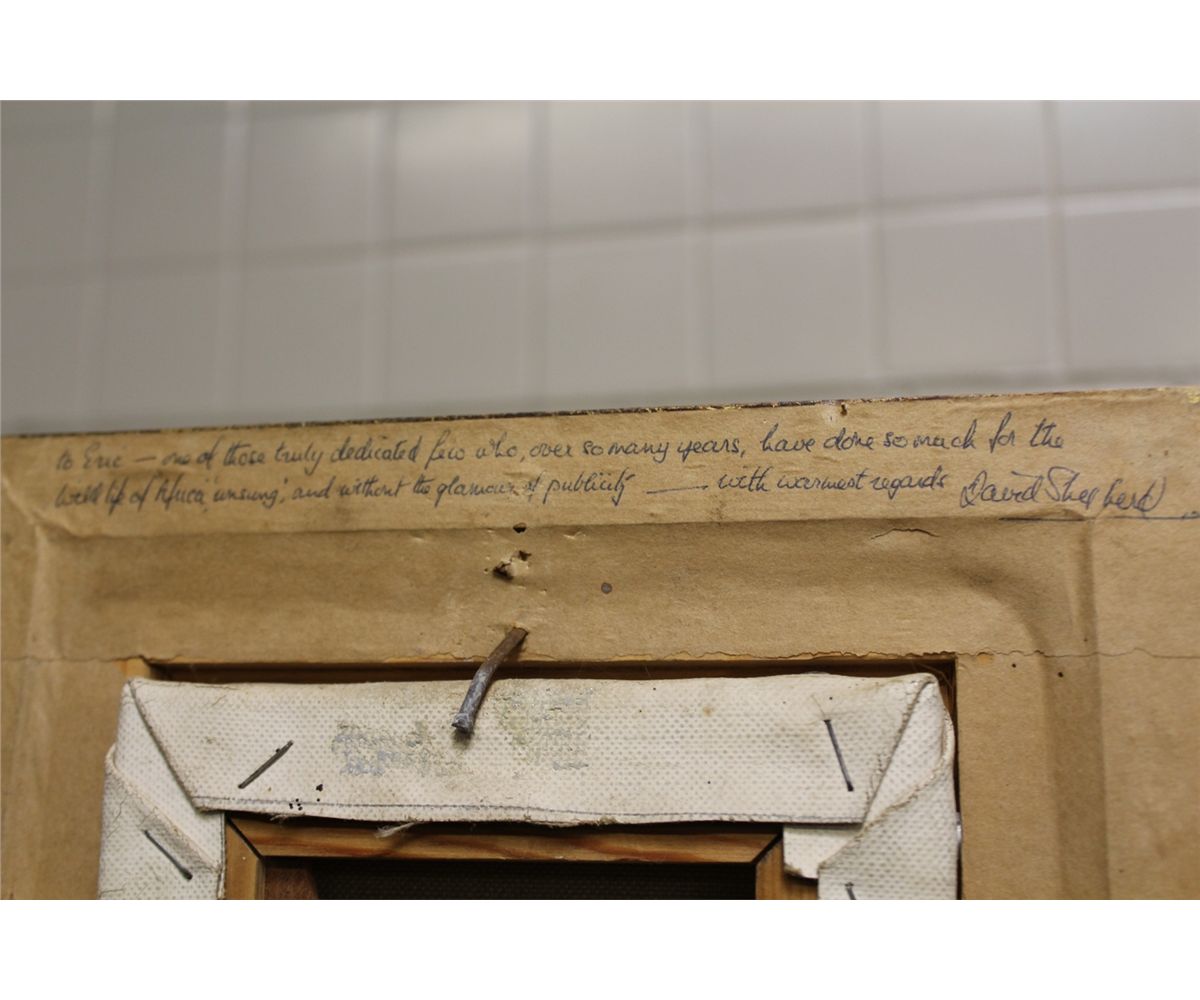 to Eric — one of those truly dedicated few who, over so many years, have done so much for the
wild life of Africa 'unsung', and without the glamour of publicity —— with warmest regards David Shepherd